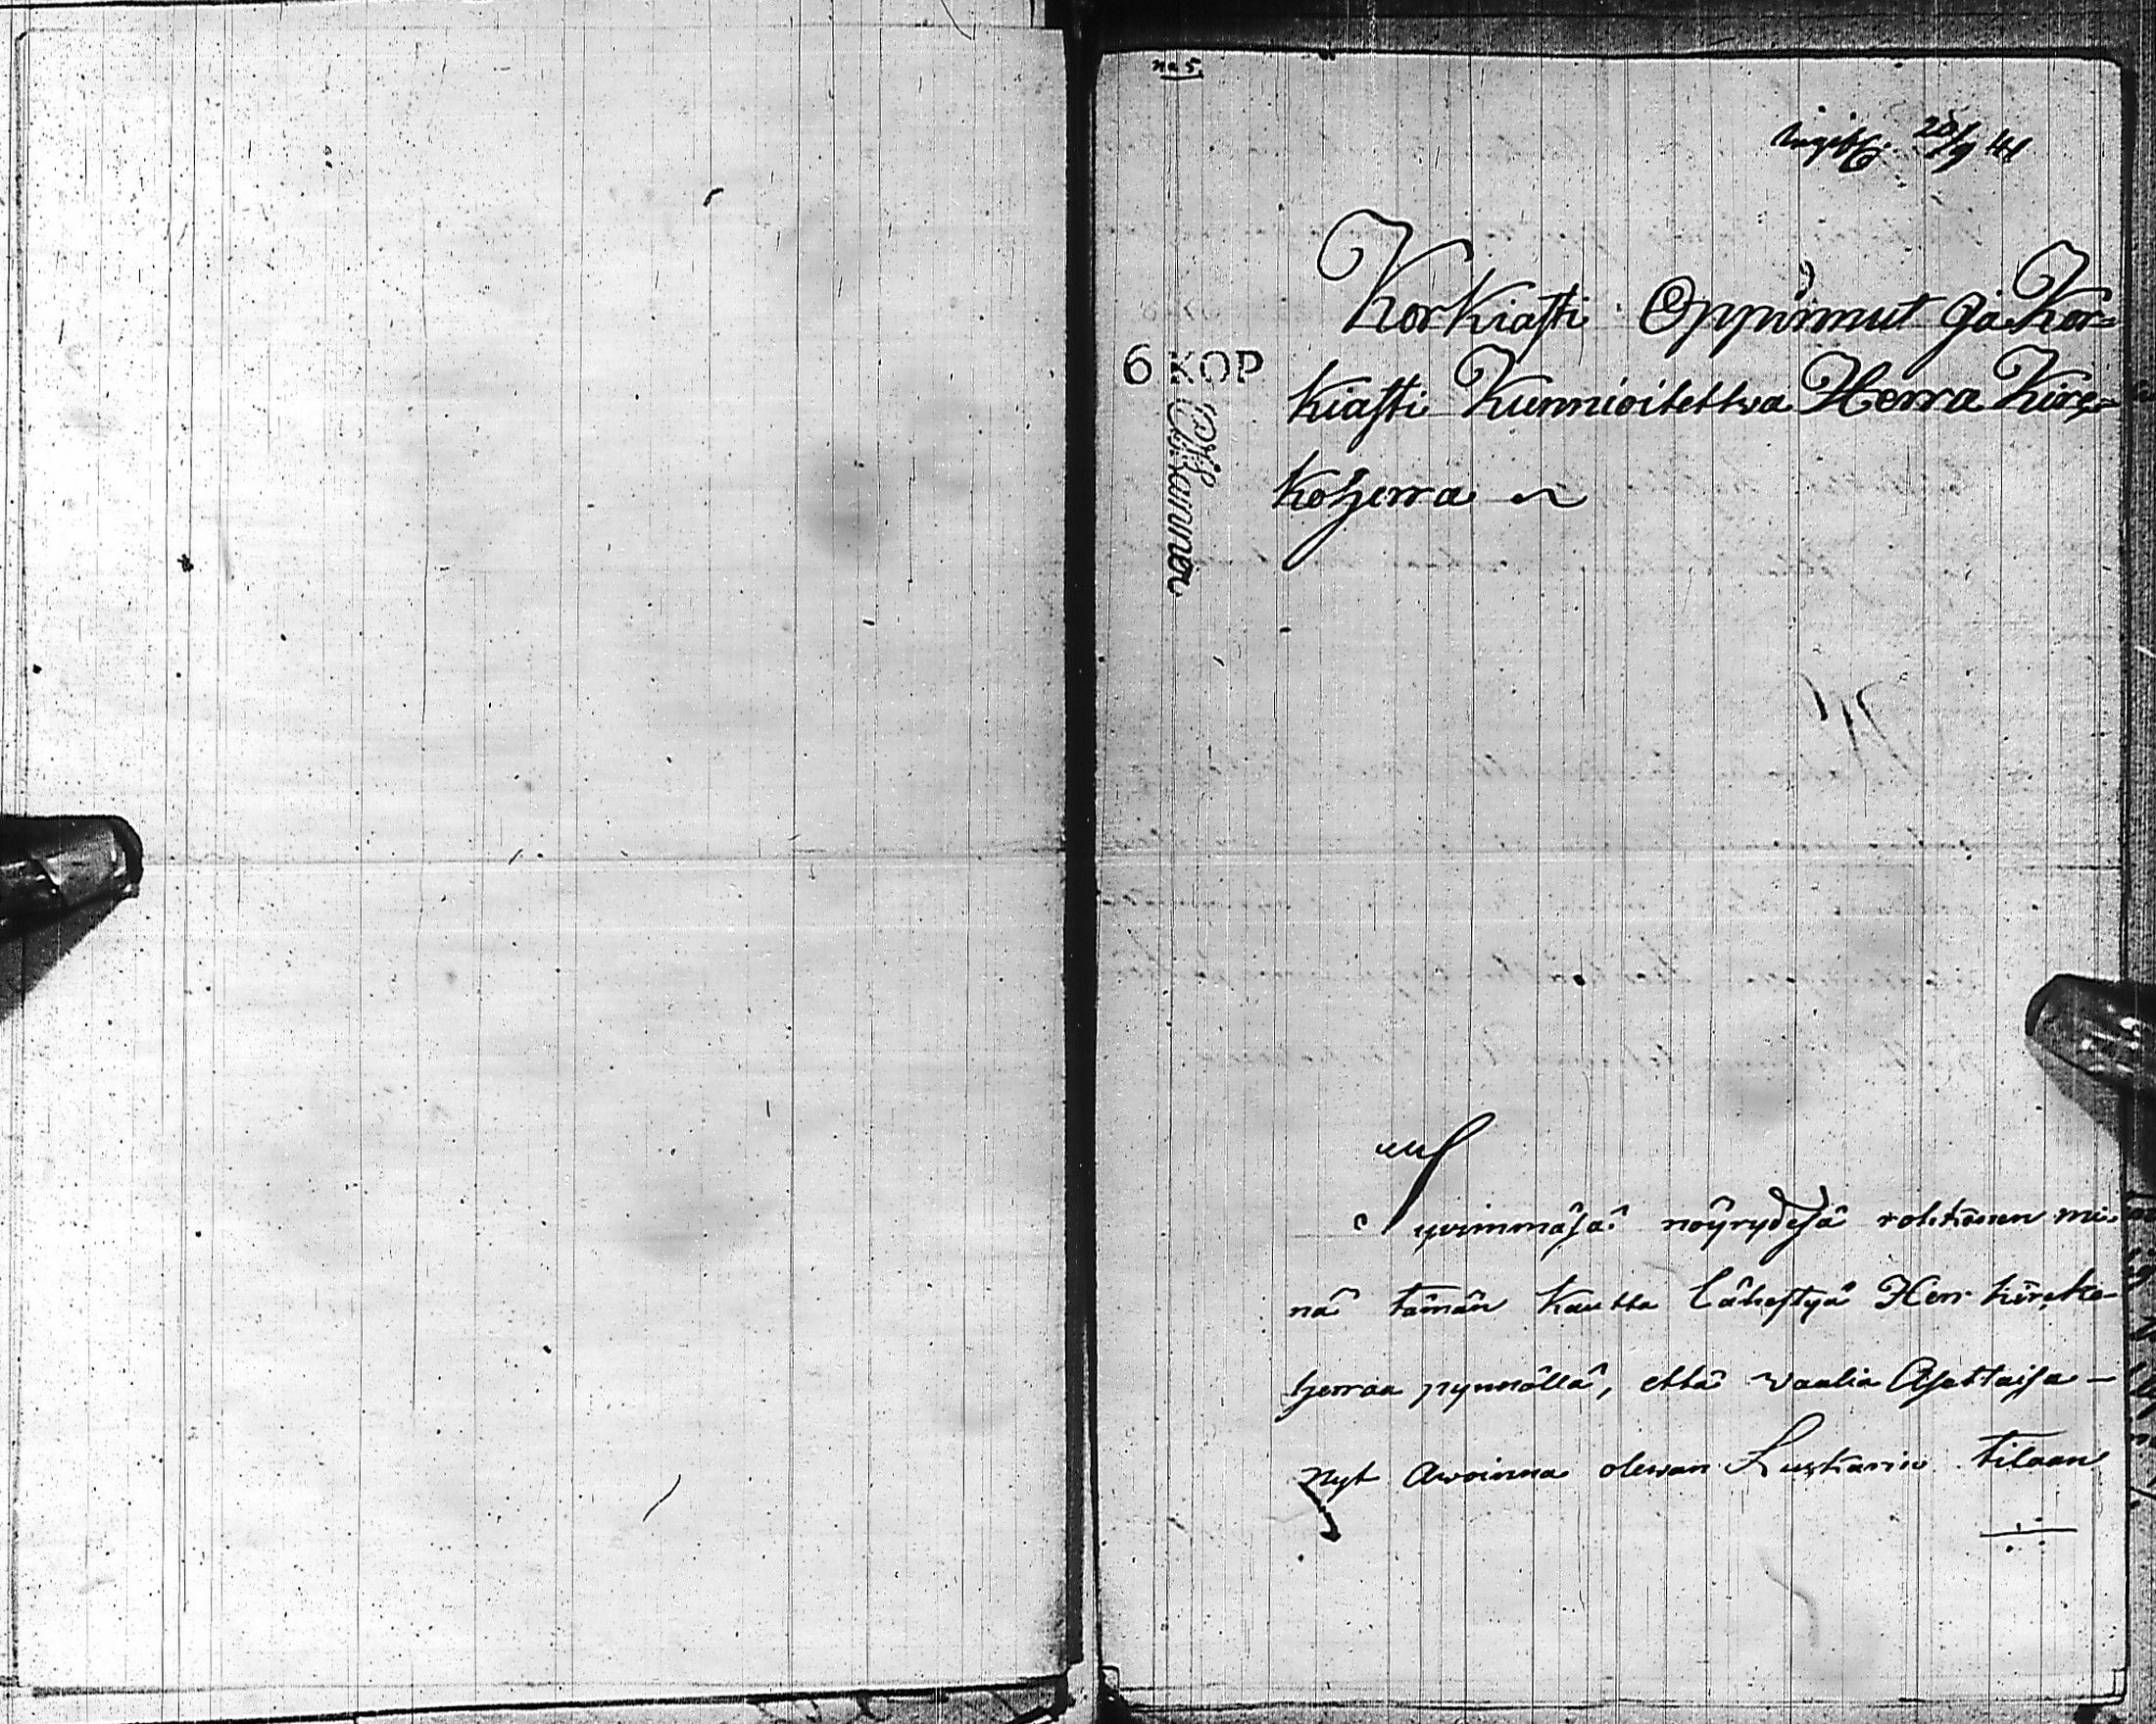 No 5.
Ingift 25/9 41
Korkiasti Oppinnut ja Kor=
6 KOP
kiasti Kunnioitettva Herra Kirc=
koherra
Syvimmäsä nöyrydesä rohkenen mi-
nä tämän kautta lähestyä Herr kircko-
herraa pynnöllä, että vaalia Asettaisa
nyt Avoinna olevan Luckarin tilaan